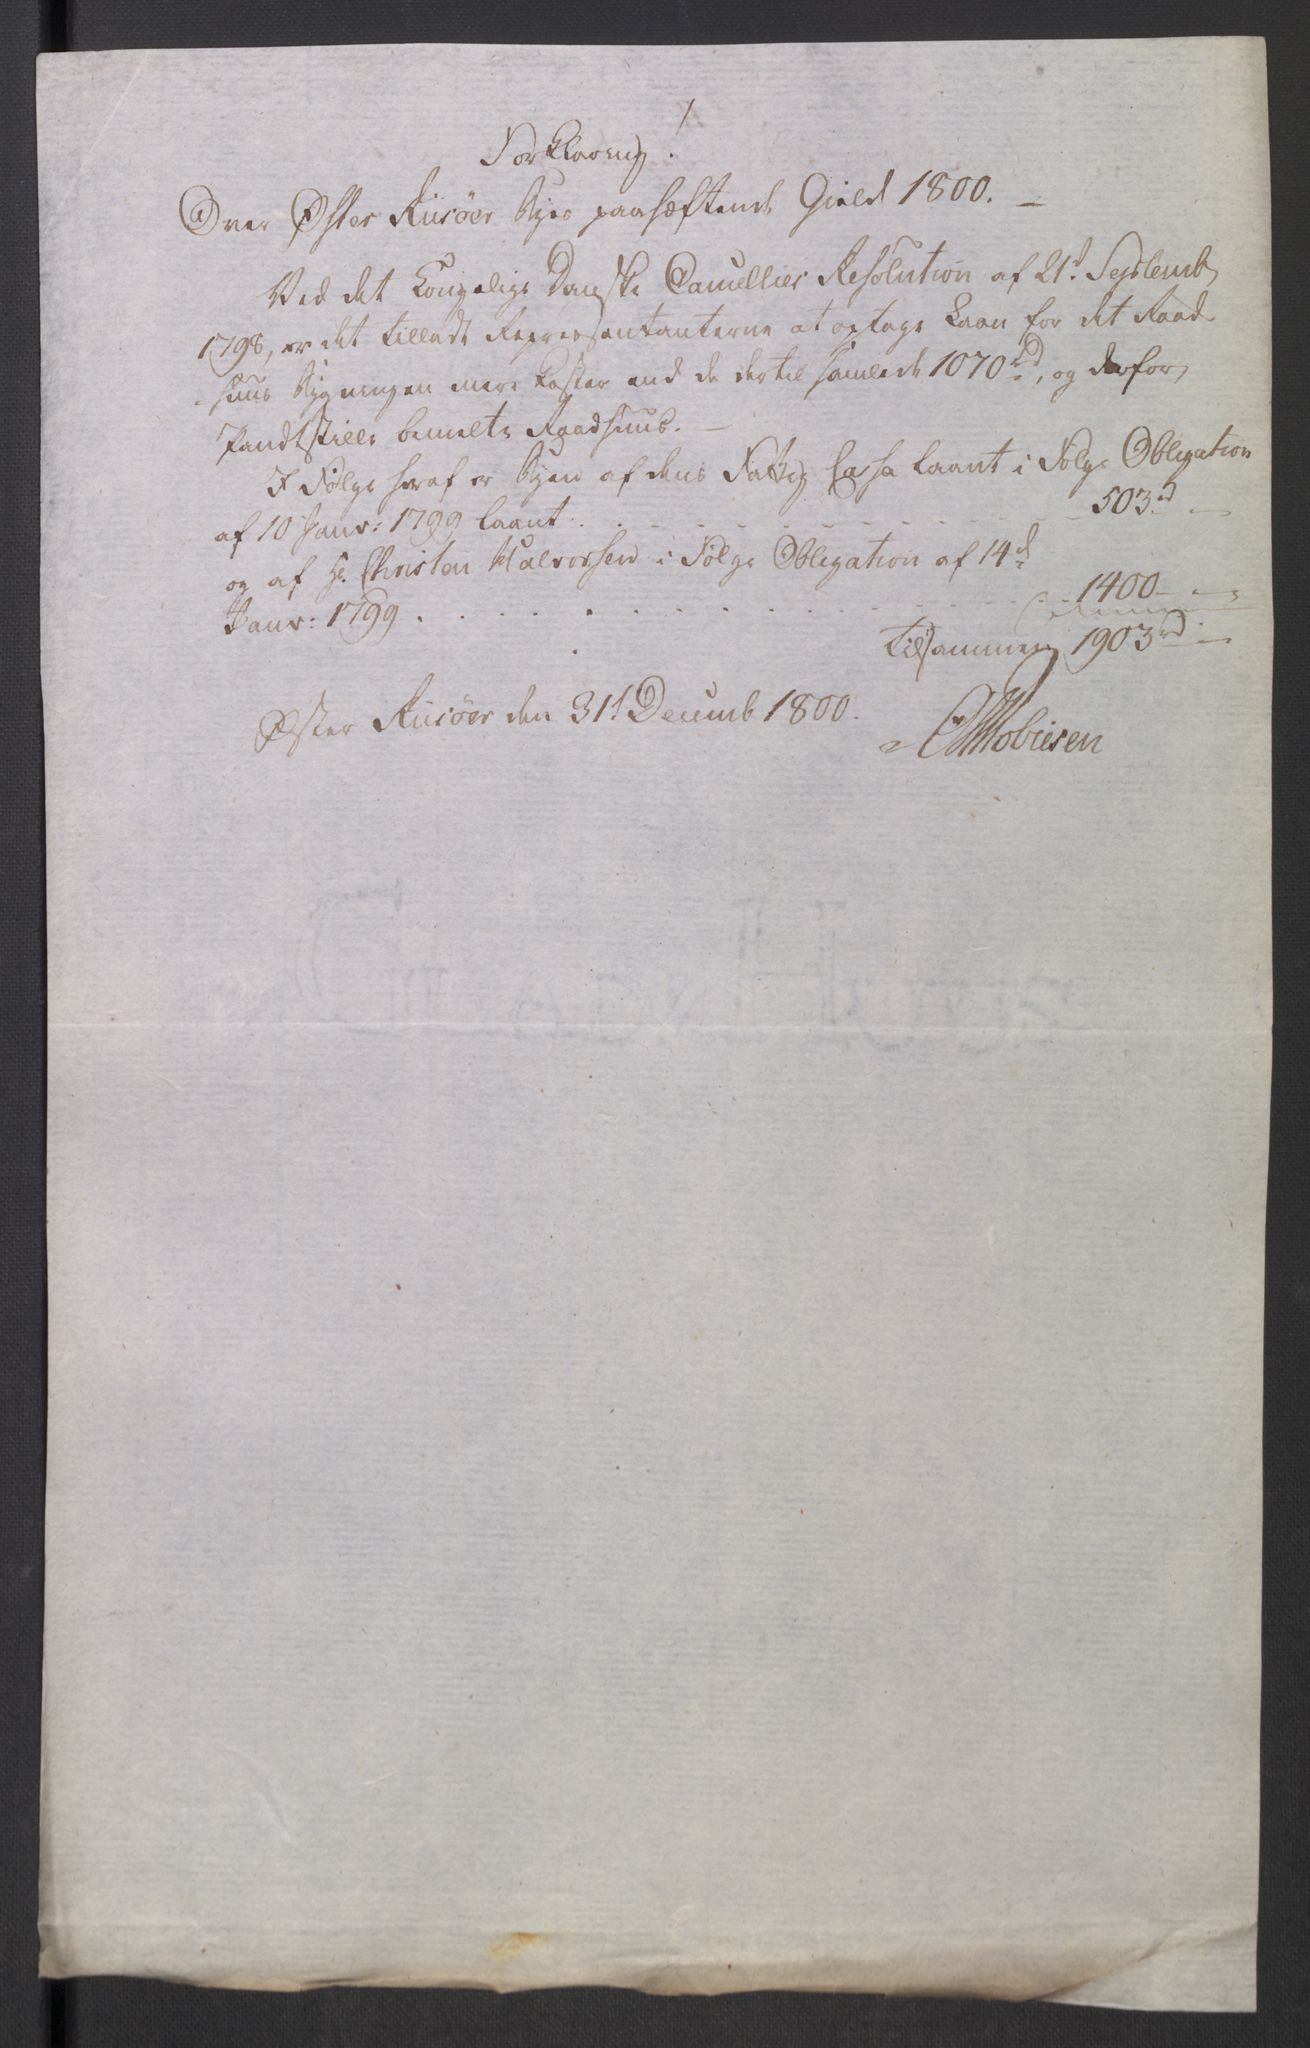 Forklaring!
Over Øster Riisöer Byes paahæftende Gield 1800. —
Ved det Kongelige Danske Cancellies Resolution af 21d Septemb
1798, er det tilladt Repræsentanterne at optage Laan for det Raad-
huus Bygningen mere koster end de dertil samlede 1070 rd, og derfor
Pandtstille bemelte Raadhuus. —
I Følge heraf er Byen af dens Fattig Cassa laant i Følge Obligation
af 10 Janv: 1799 laant . . . 503 rd —
og af Hr. Christen Halvorsen i Følge Obligation af 14d
Janv: 1799 . . . 1400 —
Tilsammen 1903 rd —
Øster Riisöer den 31t Decemb 1800.